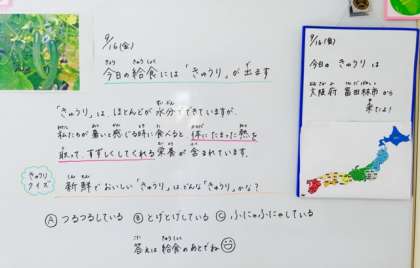 9/16(金)
今日の給食には「きゅうり」が出ます
「きゅうり」は、ほとんどが水分でできていますが、
私たちが暑いと感じる時に食べると、体にたまった熱を
取って、すずしくしてくれる栄養が含まれています。
きゅうり
クイズ
新鮮でおいしい「きゅうり」はどんな「きゅうり」かな?
Ⓐつるつるしている Ⓑとげとげしている Ⓒふにゃふにゃしている
答えは給食のあとでね
9/16(金)
今日の きゅうり は
大阪府 富田林市から
来たよ!